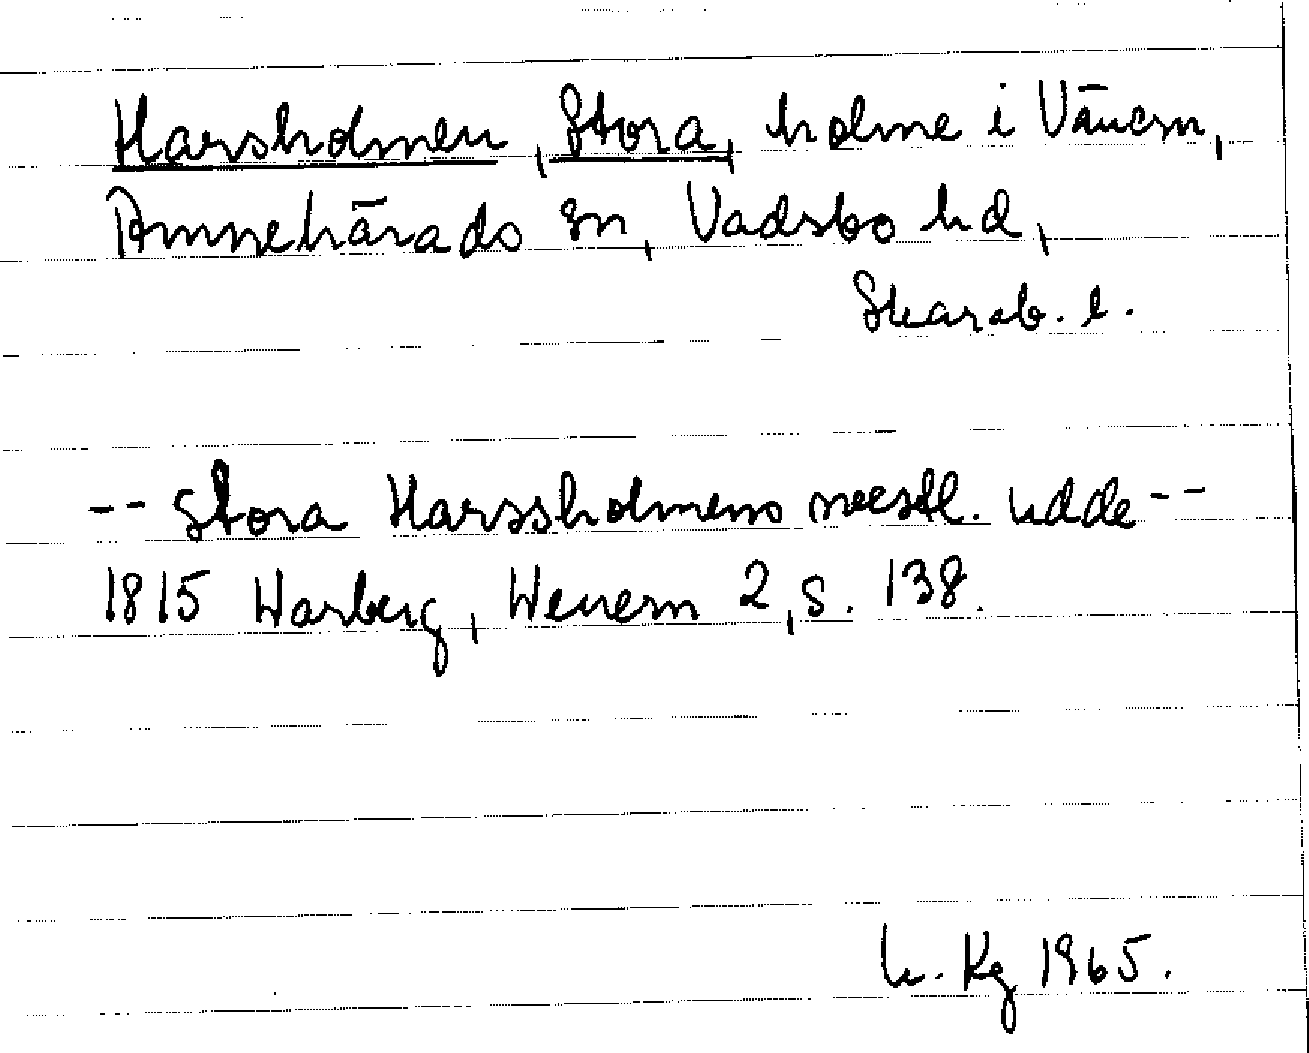 Harsholmen, Stora, holme i Vänern,
Amnehärads sn, Vadsbo hd,
Skarab. l.
-- Stora Harssholmens westl. udde --
1815 Warberg, Wenern 2, s. 138.
h. Kg 1965.